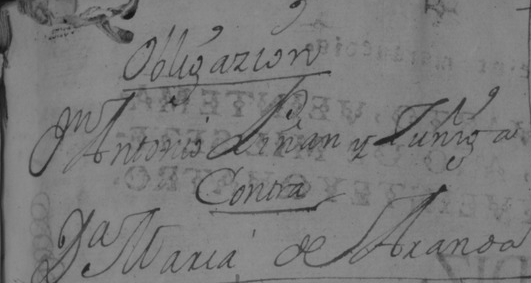 Obligazion
Antonio Liñan y Zuniga
Contra
Da Maria de Aranda